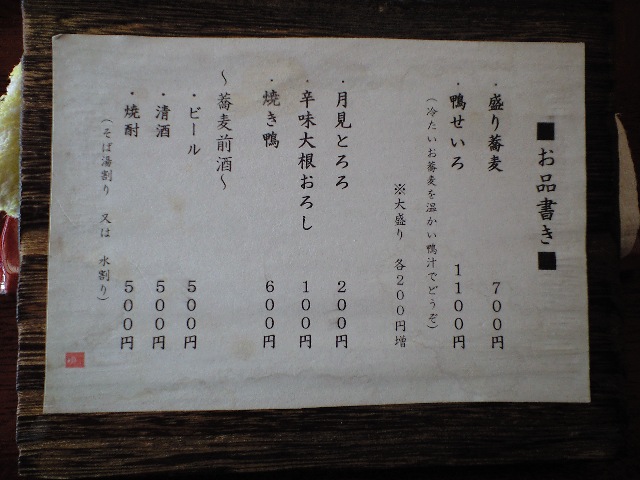 ■お品書き■
・盛り蕎麦 700円
・鴨せいろ 1100円
(冷たいお蕎麦を温かい鴨汁でどうぞ)
※大盛り 各200円増
・月見とろろ 200円
・辛味大根おろし 100円
・焼き鴨 600円
～蕎麦前酒～
・ビール 500円
・清酒 500円
・焼酎 500円
(そば湯割り 又は 水割り)